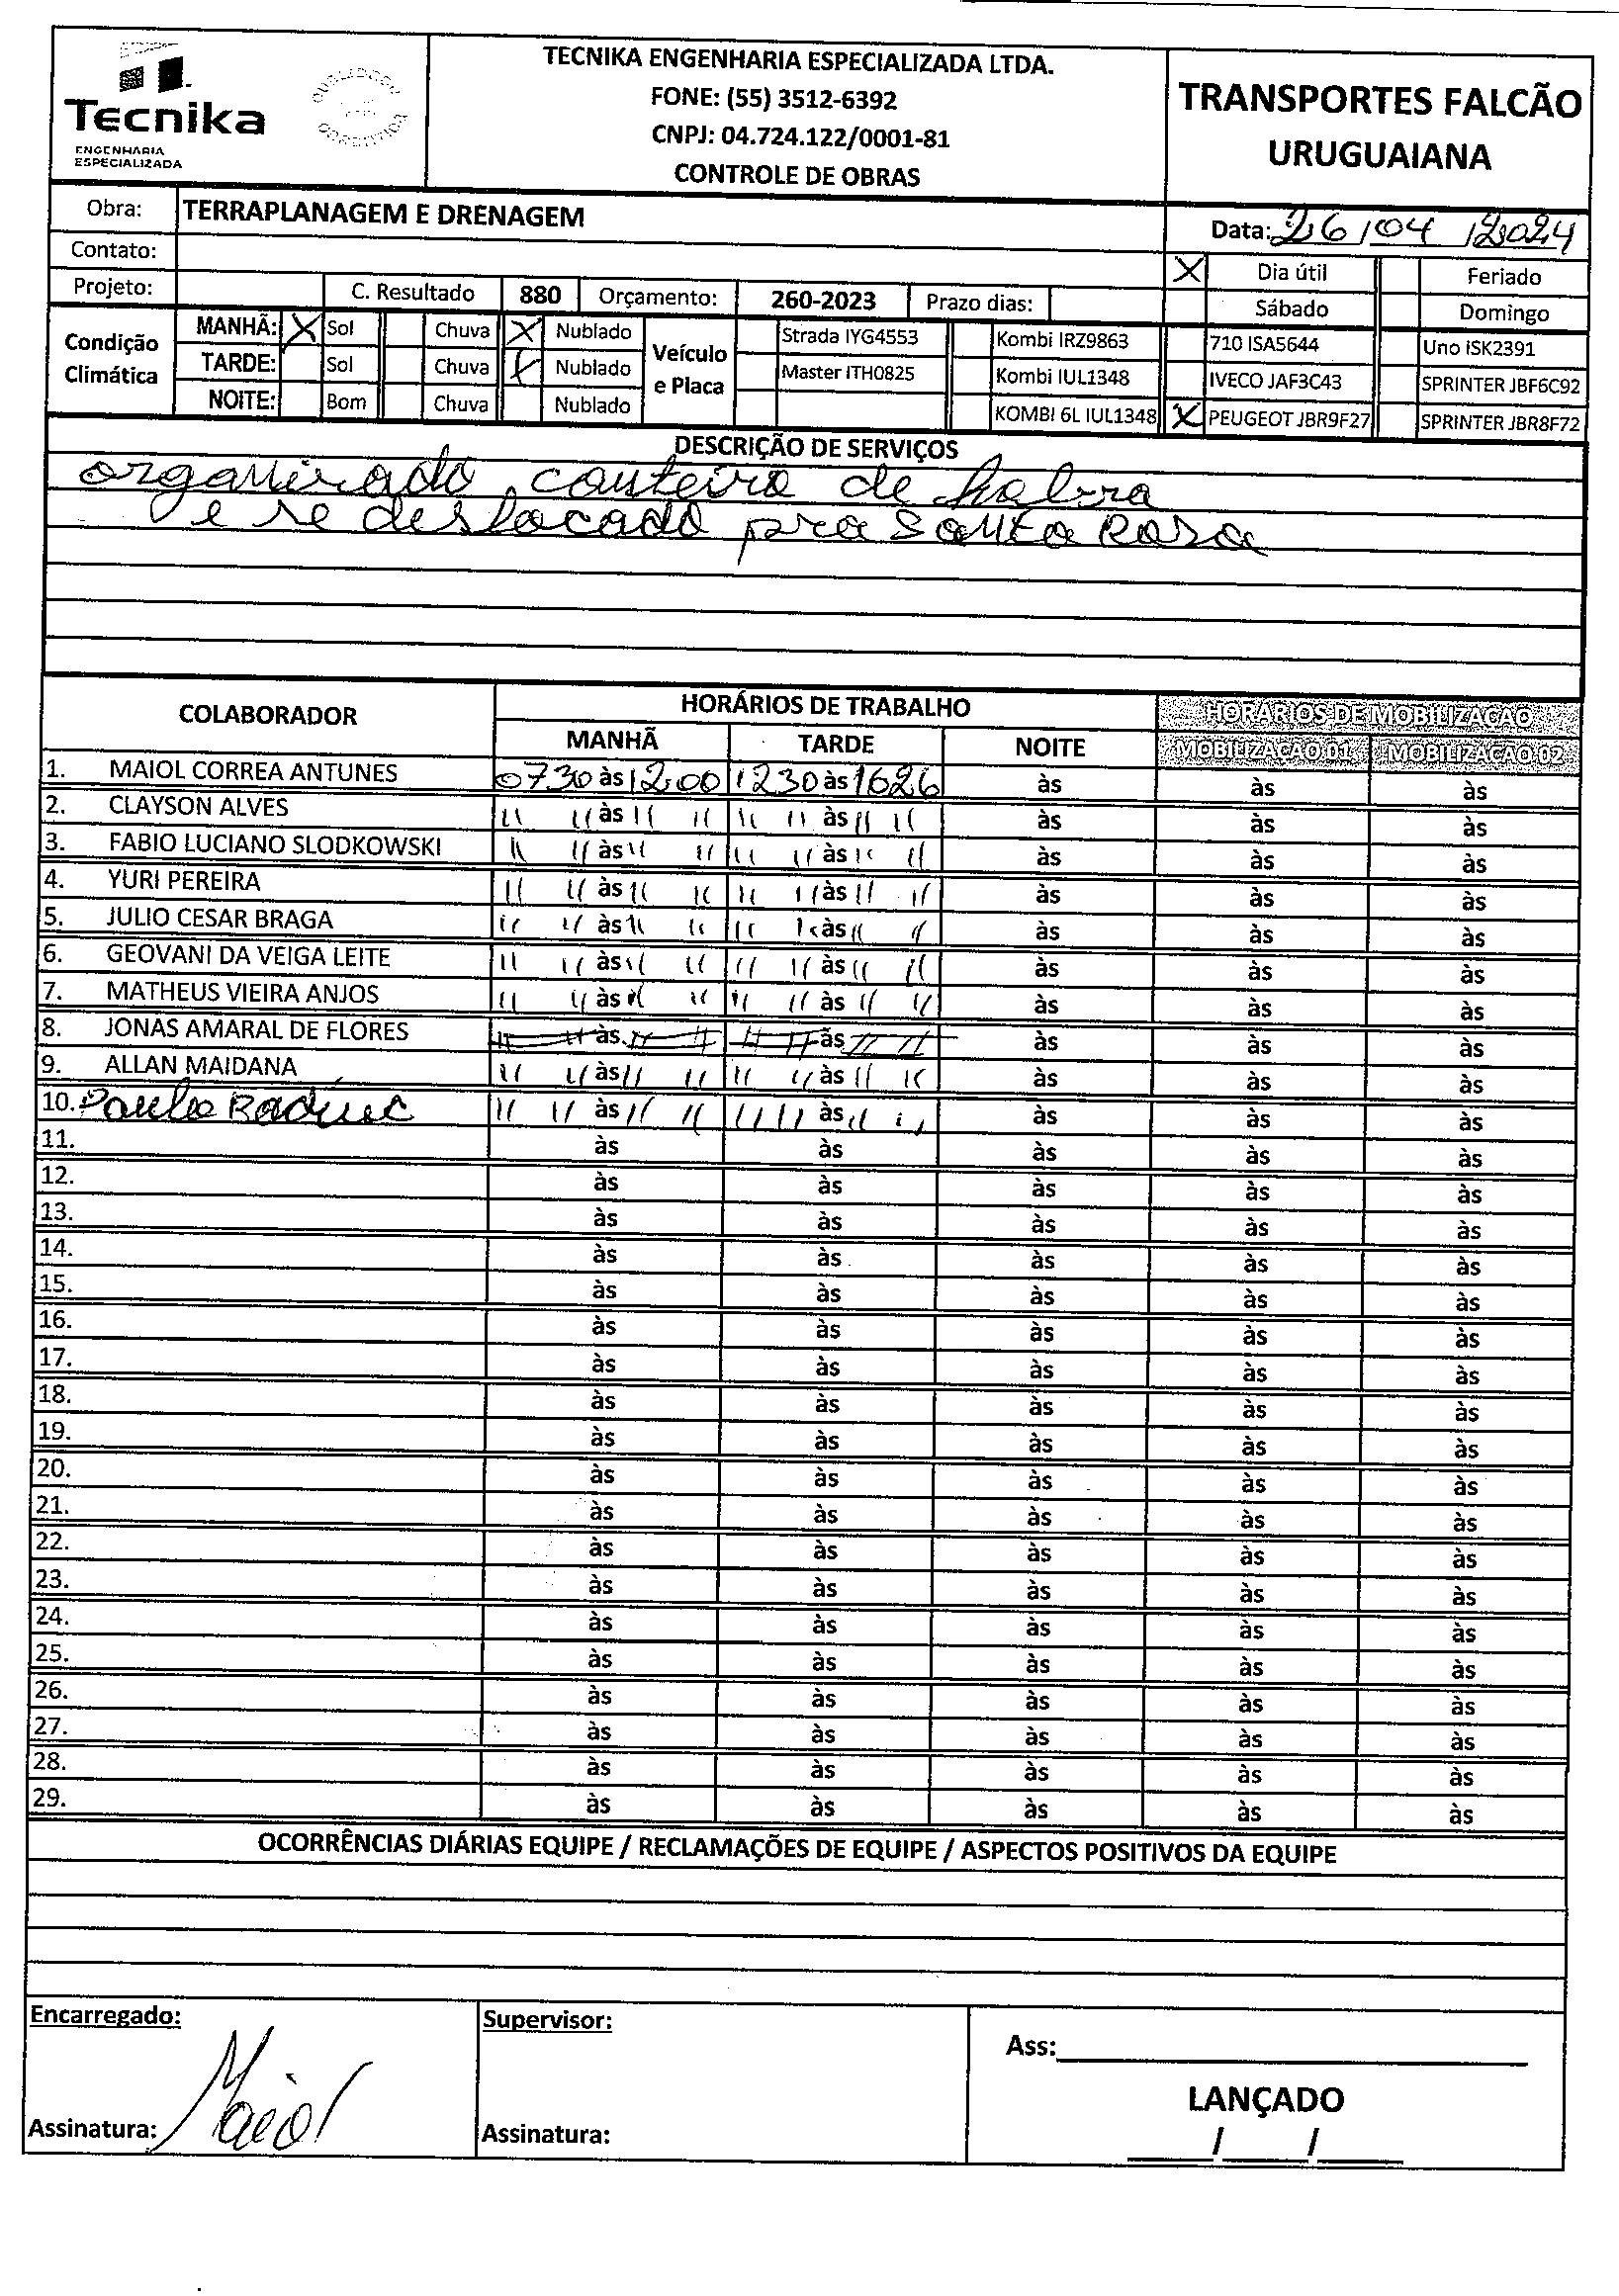 Tecnika
ENGENHARIA
ESPECIALIZADA
TECNIKA ENGENHARIA ESPECIALIZADA LTDA.
FONE: (55) 3512-6392
CNPJ: 04.724.122/0001-81
CONTROLE DE OBRAS
TRANSPORTES FALCÃO
URUGUAIANA
Obra: TERRAPLANAGEM E DRENAGEM
Data: 26/04/2024
Contato:
X Dia útil Feriado
Projeto: C. Resultado 880 Orçamento: 260-2023 Prazo dias:
Sábado Domingo
Condição Climática
MANHÃ: X Sol Chuva X Nublado
TARDE: Sol Chuva X Nublado
NOITE: Bom Chuva Nublado
Veículo e Placa
Strada IYG4553 Kombi IRZ9863 710 ISA5644 Uno ISK2391
Master ITH0825 Kombi IUL1348 IVECO JAF3C43 SPRINTER JBF6C92
KOMBI 6L IUL1348 X PEUGEOT JBR9F27 SPRINTER JBR8F72
DESCRIÇÃO DE SERVIÇOS
organizado canteiro de habra
e se deslocado pra Santa Rosa
COLABORADOR HORÁRIOS DE TRABALHO HORÁRIOS DE MOBILIZAÇÃO
MANHÃ TARDE NOITE MOBILIZAÇÃO 01 MOBILIZAÇÃO 02
1. MAIOL CORREA ANTUNES 0730 às 12:00 1230 às 1626 às às às
2. CLAYSON ALVES " " às " " " " às " " às às às
3. FABIO LUCIANO SLODKOWSKI " " às " " " " às " " às às às
4. YURI PEREIRA " " às " " " " às " " às às às
5. JULIO CESAR BRAGA " " às " " " " às " " às às às
6. GEOVANI DA VEIGA LEITE " " às " " " " às " " às às às
7. MATHEUS VIEIRA ANJOS " " às " " " " às " " às às às
8. JONAS AMARAL DE FLORES " " às " " " " às " " às às às
9. ALLAN MAIDANA " " às " " " " às " " às às às
10. " " às " " " " às " " às às às
11. às às às às às
12. às às às às às
13. às às às às às
14. às às às às às
15. às às às às às
16. às às às às às
17. às às às às às
18. às às às às às
19. às às às às às
20. às às às às às
2121. às às às às às
22. às às às às às
23.. às às às às às
24. às às às às às
25. às às às às às
.. às às às às às
27. às às às às às
28. às às às às às
29. às às às às às
OCORRÊNCIAS DIÁRIAS EQUIPE / RECLAMAÇÕES DE EQUIPE / ASPECTOS POSITIVOS DA EQUIPE
Encarregado: Supervisor:
Ass:
LANÇADO
Assinatura: Maiol Assinatura:
/ /